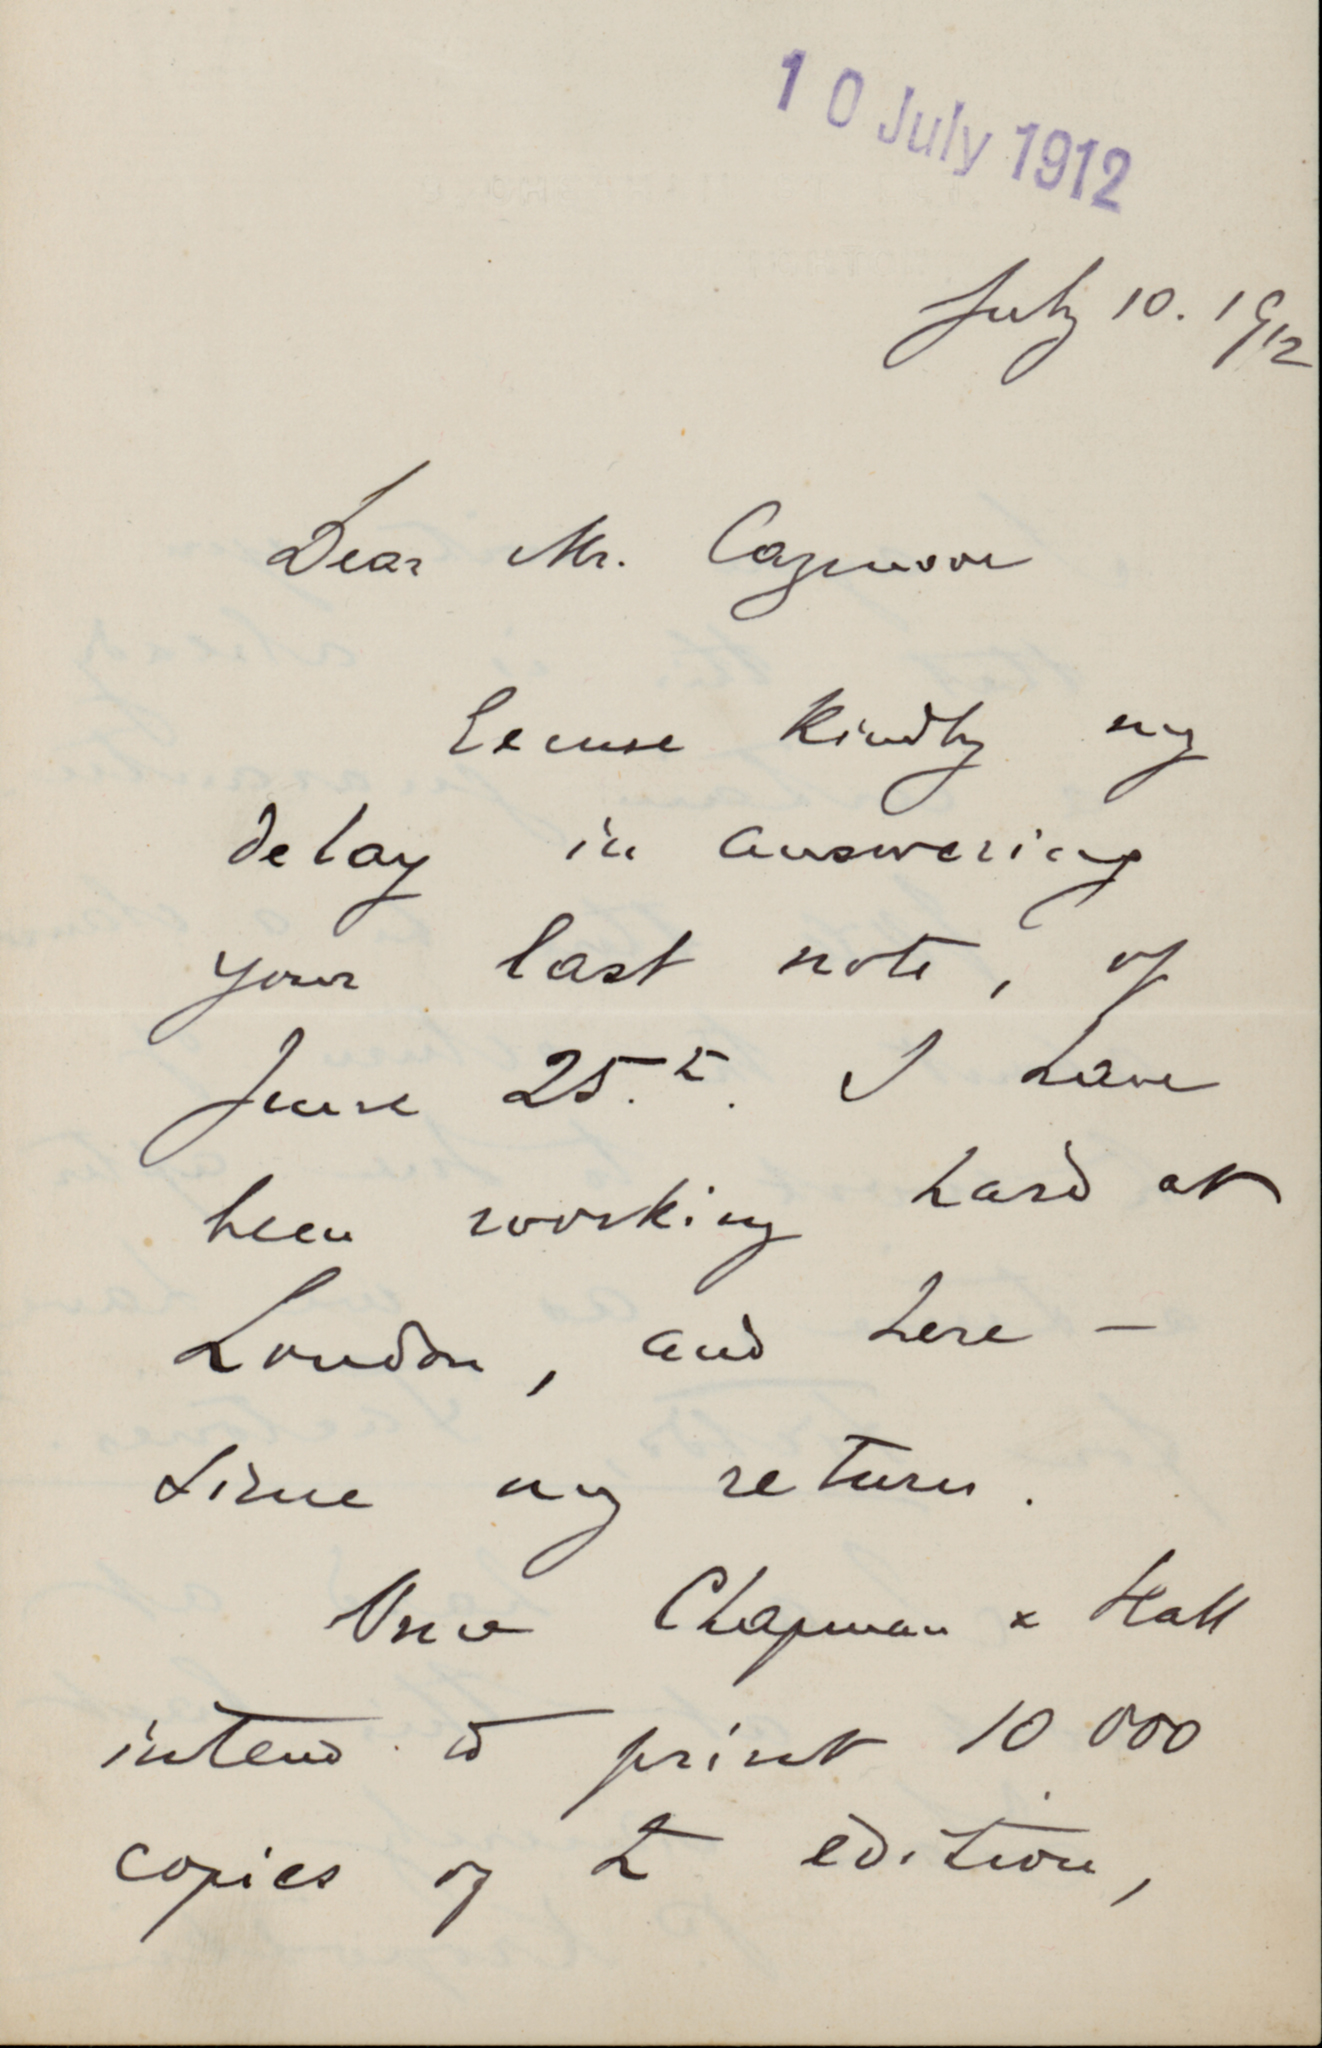 10 July 1912
July 10. 1912
Dear Mr. Cazenove
Excuse kindly my
delay in answering
your last note, of
June 25.th. I have
been working hard at
London, and here –
since my return.
Chapman & Hall
intend to print 10 000
copies of edition,